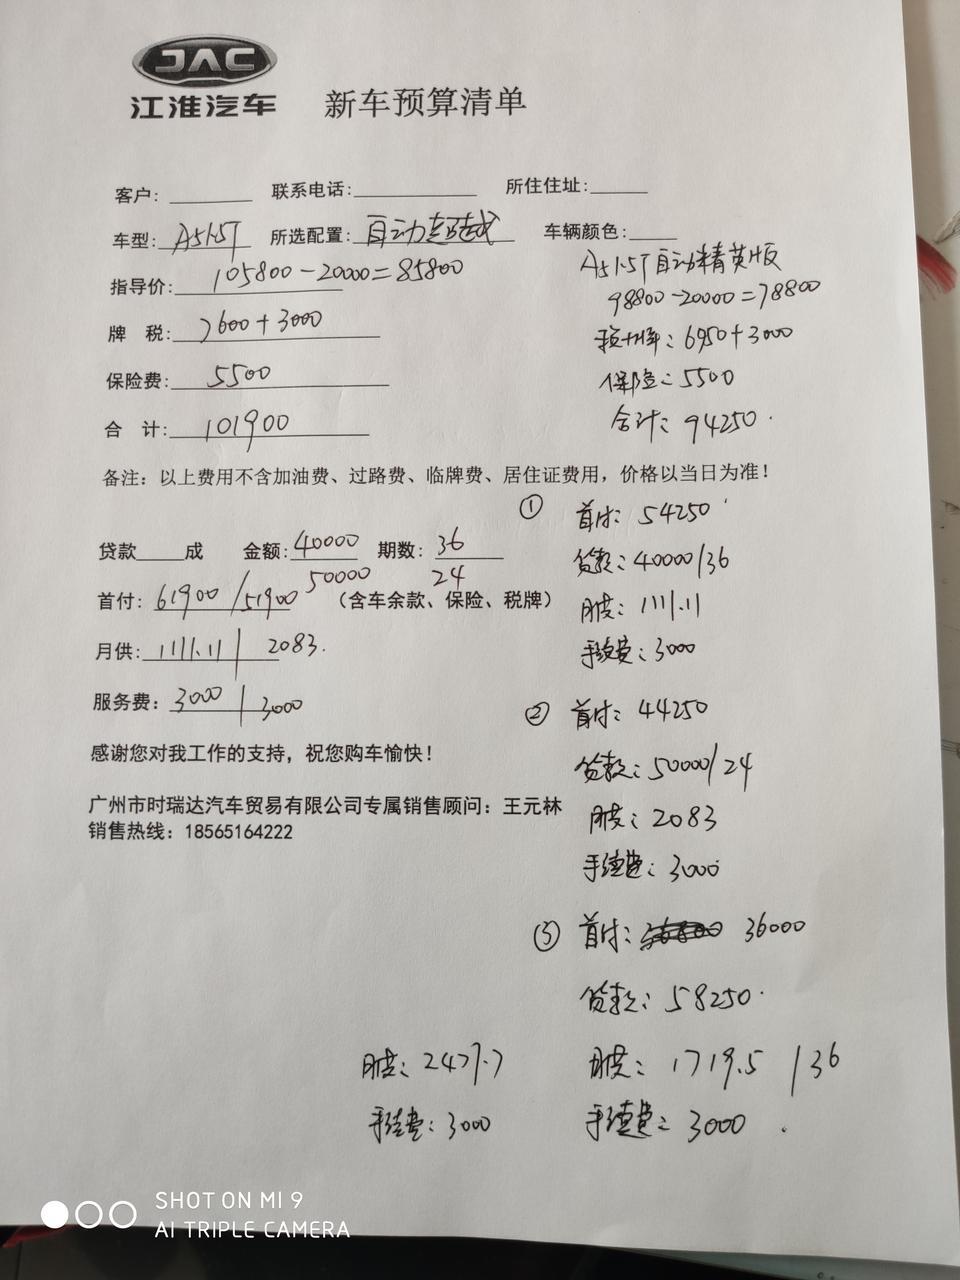 JAC
江淮汽车
新车预算清单
客户: 联系电话: 所住住址:
车型: A51.5T 所选配置: 自动超越 车辆颜色:
指导价: 105800-20000=85800
牌 税: 7600+3000
保险费: 5500
合 计: 101900
A51.5T自动精英版
98800-20000=78800
: 6950+3000
保险: 5500
合计: 94250.
备注: 以上费用不含加油费、过路费、临牌费、居住证费用, 价格以当日为准!
贷款 成 金额: 40000 期数: 36
50000 24
首付: 61900/51900 (含车余款、保险、税牌)
月供: 1111.11 | 2083.
服务费: 3000 | 3000
感谢您对我工作的支持, 祝您购车愉快!
广州市时瑞达汽车贸易有限公司专属销售顾问: 王元林
销售热线: 18565164222
① 首付: 54250
贷款: 40000/36
月供: 1111.11
手续费: 3000
② 首付: 44250
贷款: 50000/24
月供: 2083
手续费: 3000
③ 首付: 36000
贷款: 58250.
月供: 1719.5 /36
手续费: 3000.
月供: 2427.7
手续费: 3000
SHOT ON MI 9
AI TRIPLE CAMERA